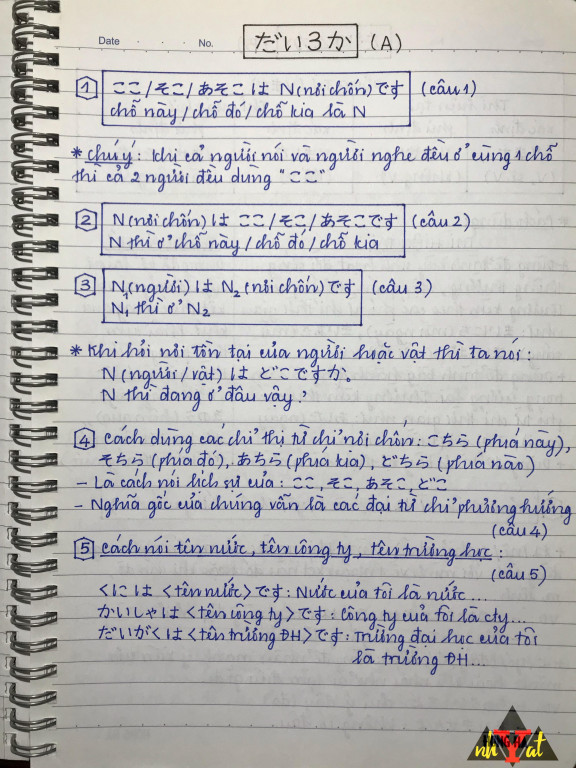 Date No. だい3か (A)
1 ここ/そこ/あそこは N(nơi chốn)です (câu 1)
chỗ này/chỗ đó/chỗ kia là N
* chú ý: Khi cả người nói và người nghe đều ở cùng 1 chỗ
thì cả 2 người đều dùng "ここ"
2 N(nơi chốn)は ここ/そこ/あそこです (câu 2)
N thì ở chỗ này/chỗ đó/chỗ kia
3 N₁(người)は N₂(nơi chốn)です (câu 3)
N₁ thì ở N₂
* Khi hỏi nơi tồn tại của người hoặc vật thì ta nói:
N(người/vật)は どこですか。
N thì đang ở đâu vậy?
4 Cách dùng các chỉ thị từ chỉ nơi chốn: こちら(phía này),
そちら(phía đó), あちら(phía kia), どちら(phía nào)
- Là cách nói lịch sự của: ここ, そこ, あそこ, どこ
- Nghĩa gốc của chúng vẫn là các đại từ chỉ phương hướng
(câu 4)
5 Cách nói tên nước, tên công ty, tên trường học:
(câu 5)
くには <tên nước>です: Nước của tôi là nước...
かいしゃは <tên công ty>です: Công ty của tôi là cty...
だいがくは <tên trường ĐH>です: Trường đại học của tôi
là trường ĐH...